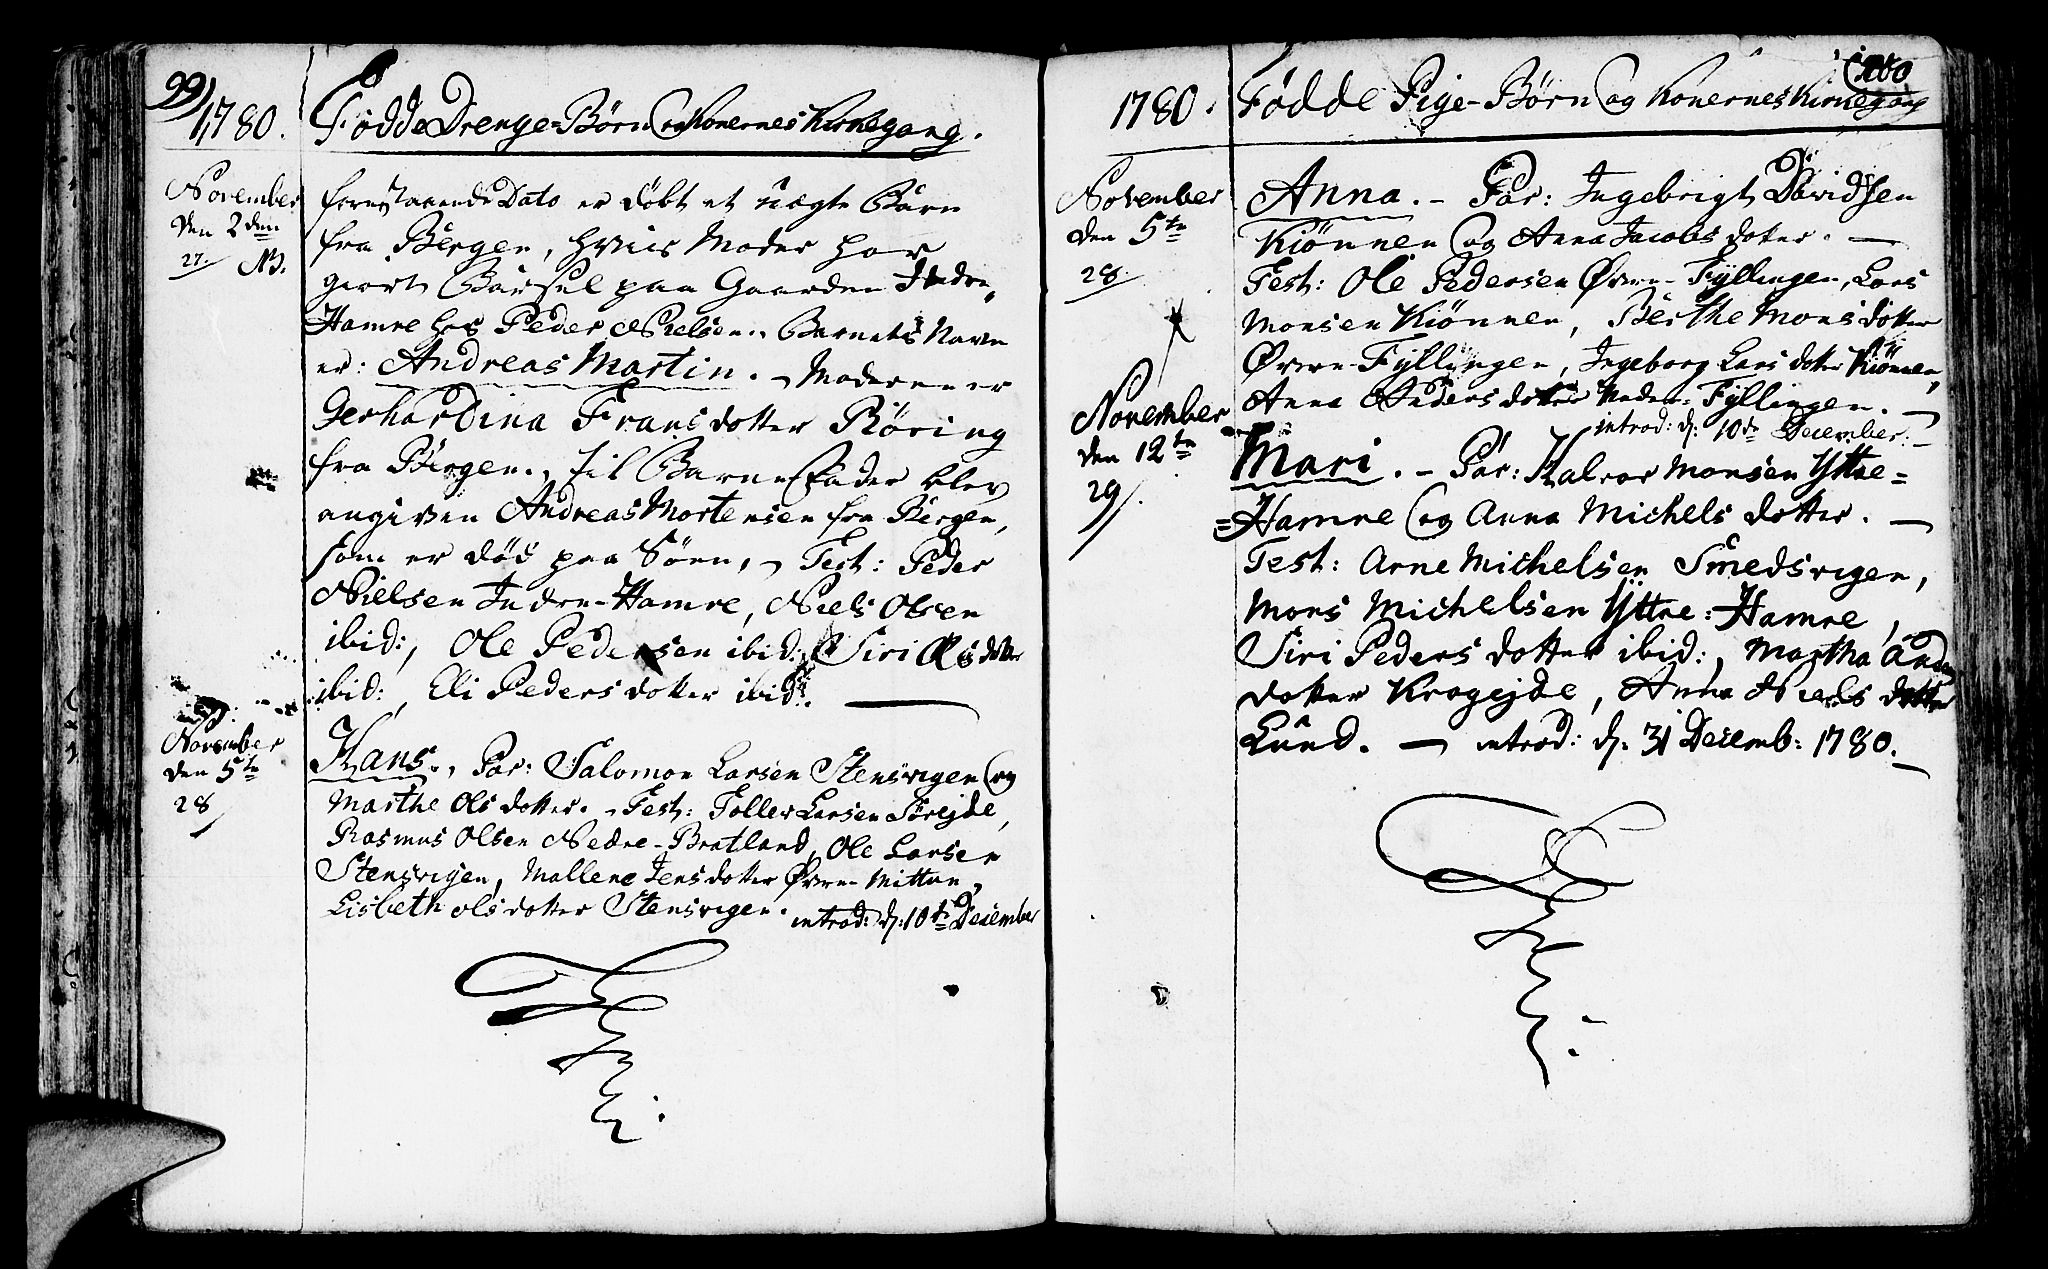 99)
1780. Fødde Drenge-Børn og Konernes Kirkegang.
November
den 2den
27. NB.
fornstaaende Dato er døbt et uægte Barn
fra Bergen, hvis Moder har
giort Barsel paa Gaarden Indre
Hamre hos Peder Nielsen. Barnets Navn
er: Andreas Martin. - Moderen er
Gerhardina Fransdotter Röring
fra Bergen., til Barne Fader blev
angiven Andreas Mortensen fra Bergen,
som er död paa Söen, - Test: Peder
Nielsen Indre-Hamre, Niels Olsen
ibid:, Ole Pedersen ibid:, Siri dotter
ibid:, Eli Peders dotter ibid:.
November
den 5te
28
Hans., Par: Salomon Larsen Stensvigen og
Marthe Ols dotter. - Test: Toller Larsen
Rasmus Olsen Nedre-Bratland, Ole Larsen
Stensvigen, Mallene Jensdotter Øvre-Mitten,
Lisbeth Olsdotter Stensvigen. introd: d: 10de December
100
1780. Fødde Pige-Børn og Konernes Kirkegang
November
den 5te
28.
Anna. - Par: Ingebrigt Davidsen
Kiønnen og Anna Jacobs dotter. -
Test: Ole Pedersen Øvre-Fyllingen, Lars
Monsen Kiønnen, Berthe Monsdotter
Øvre-Fyllingen, Ingeborg Larsdotter Kiønnen,
Anna Andersdotter Neder-Fyllingen. -
introd: d: 10de December. -
November
den 12te
29.
Mari. - Par: Halvor Monsen Yttre=
=Hamre og Anna Michels dotter. -
Test: Arne Michelsen Smedsvigen,
Mons Michelsen Yttre-Hamre,
Siri Peders dotter ibid:, Martha Anders
dotter Krogejde, Anna Niels dotter
Lund. - introd: d: 31 Decemb: 1780. -